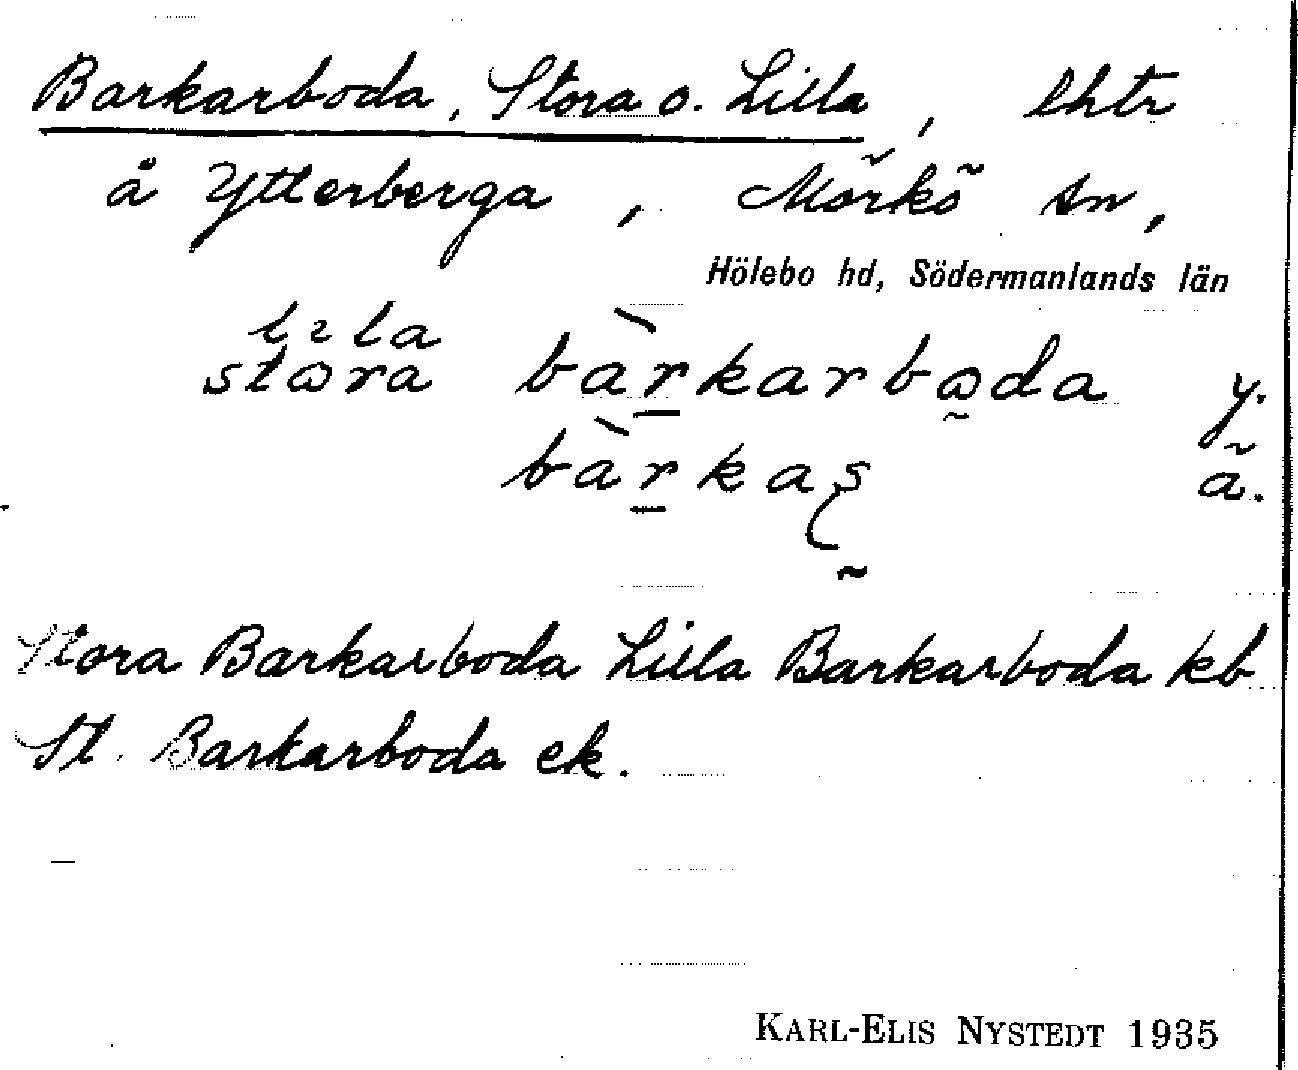 Barkarboda, Stora o. Lilla, lhtr
å Ytterberga, Mörkö sn,
Hölebo hd, Södermanlands län
lɩla
stωra bàrkarbωda y.
bàrkaş ä.
Stora Barkarboda Lilla Barkarboda kb
St. Barkarboda ek.
KARL-ELIS NYSTEDT 1935